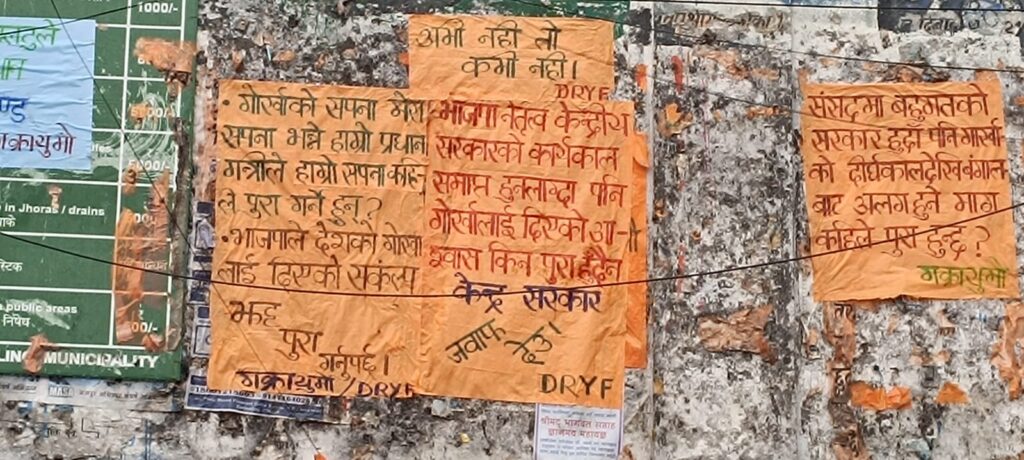 1000/-
5000/-
in Jhoras / drains
public areas
LING MUNICIPALITY
अभी नहीं तो
कभी नहीं।
DRYF
• गोर्खाको सपना मेरो
सपना भन्ने हाम्रो प्रधान
मन्त्रीले हाम्रो सपना कहि-
ले पुरा गर्ने हुन्?
• भाजपाले देशको गोर्खा
लाई दिएको संकल्प
झट्ट
पुरा
गर्नुपर्छ।
गक्रायुमो / DRYF
भाजपा नेतृत्व केन्द्रीय
सरकारको कार्यकाल
समाप्त हुनलाग्दा पनि
गोर्खालाई दिएको आ-
श्वास किन पुरा हुँदैन
केन्द्र सरकार
जवाफ देउ।
DRYF
संसदमा बहुमतको
सरकार हुँदा पनि गोर्खा
को दीर्घकालदेखि बंगाल
बाट अलग हुने माग
कहिले पुरा हुन्छ?
गक्रायुमो
श्रीमद् भागवत सप्ताह
ज्ञानमय महायज्ञ